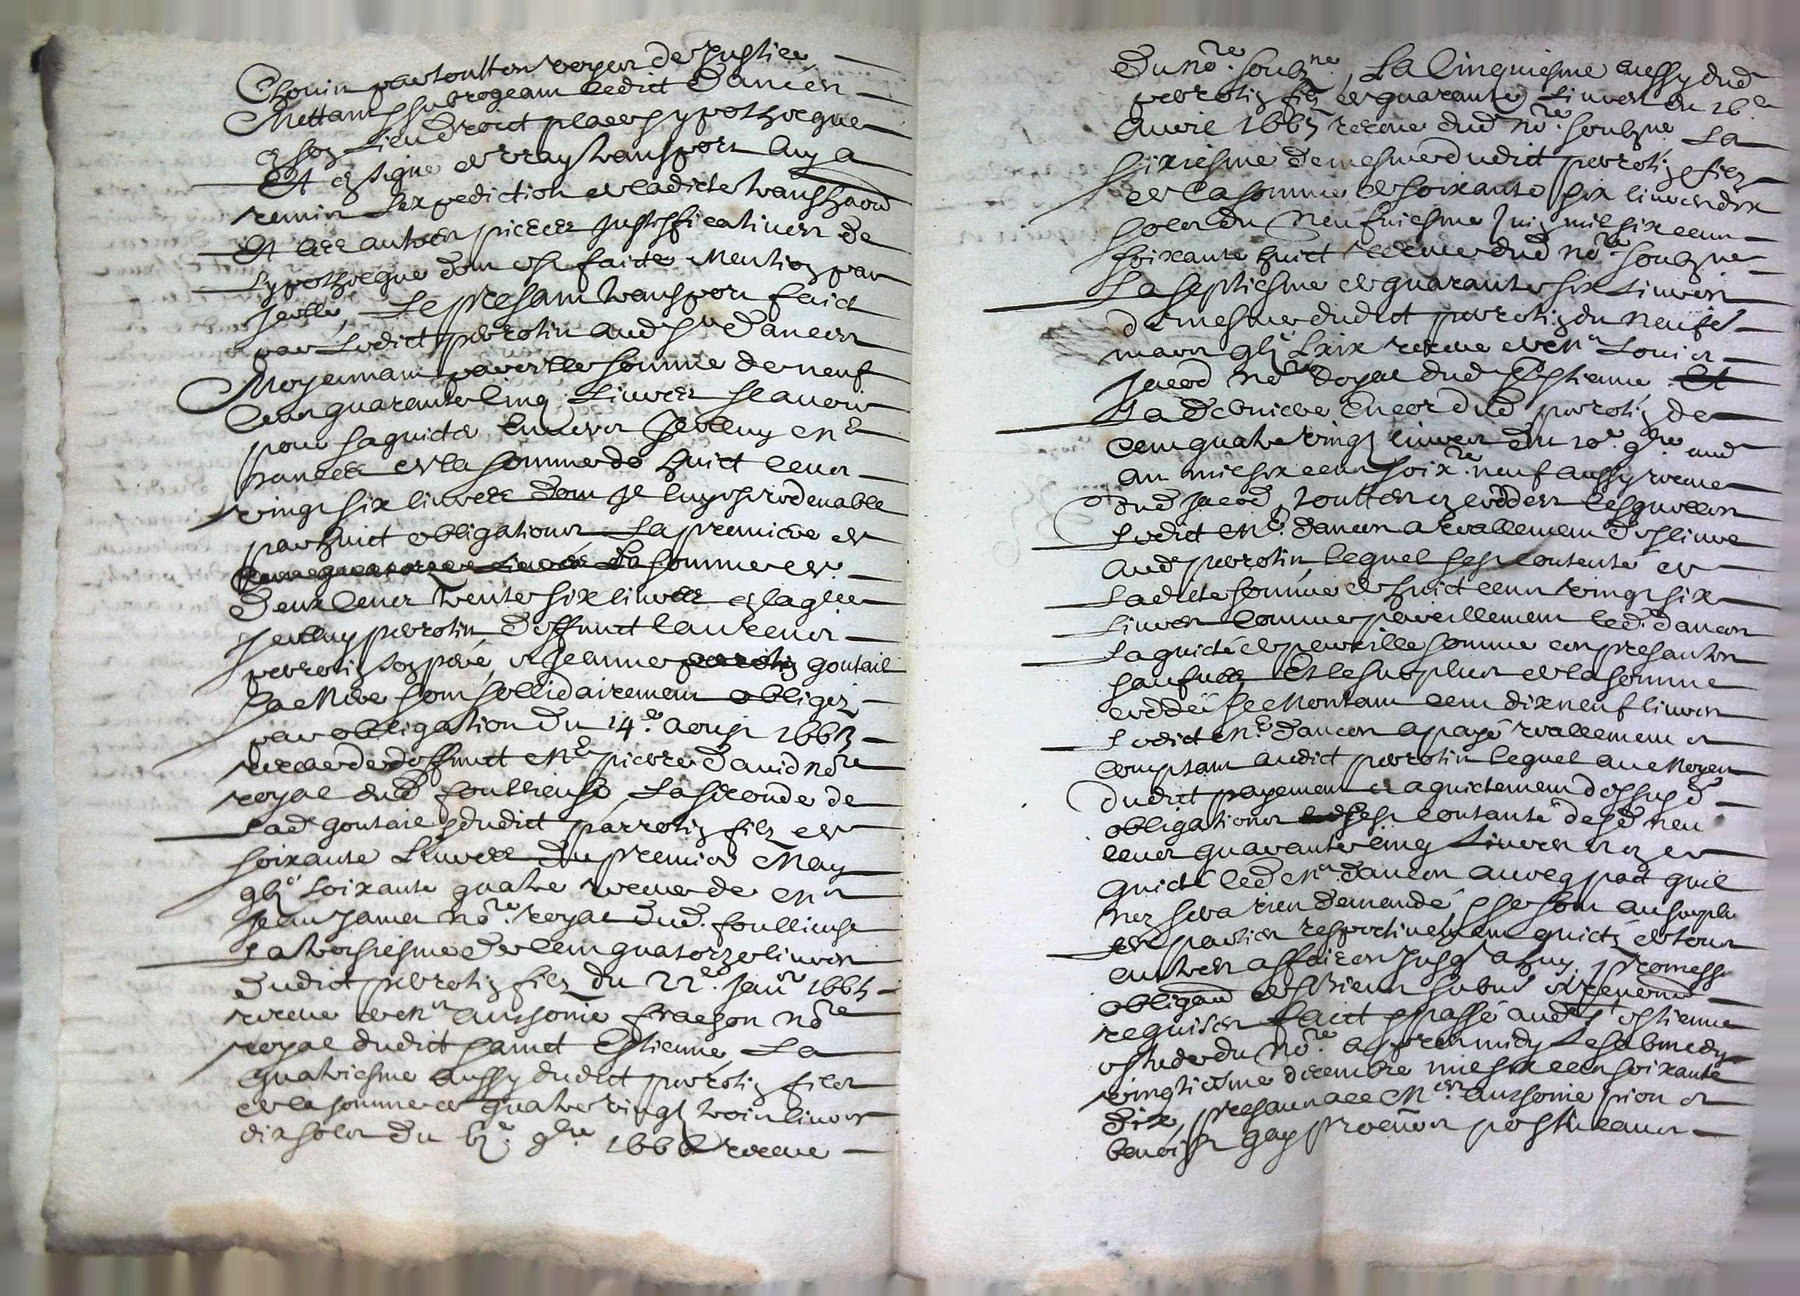 Chouin par touttes voyes de Justice
Mettant & subrogeant ledict Dancer
en son lieu droict place & ypothecque
Et en signe de vray transport luy a
remis l'expediction de ladicte transaon
Et les autres pieces justifficatives de
l'ypothecque dont est faicte mention par
icelle, Le presant transport faict
par ledict perrotin aud Sr Dancer
Moyennant pareille somme de neuf
cens quarante cinq livres Scavoir
pour saquicter envers icelluy Me
de la somme de huict cens
vingt six livres dont il luy est redevable
par huict obligations La premiere de
La somme de
deux cens trente six livres en laqlle
icelluy perrotin deffunct Laurens
perrotin son pere & Jeanne goutail
sa Mere sont sollidairement obligez
par obligation du 14e aoust 1663
receue de deffunct Me pierre David nore
royal dud foullieuse, La seconde de
lad goutail & dudict perrotin filz de
soixante Livres du premier May
gbic soixante quatre receue de Me
Jean Jamet nore royal dud. foullieuse
La troisiesme de cent quatorze livres
dudict perrotin filz du 22e Janr 1665
receue de Me anthoine nore
royal dudict sainct Estienne, La
quatriesme aussy dudict perrotin filz
de la somme de quatre vingt trois livres
dix solz du 9bre 1666 receue
Du nore soubzne, La cinquiesme aussy dud
perrotin filz de quarante Livres du 16e
Avril 1667 receue dud nore soubzne La
sixiesme de mesme dudict perrotin filz
de la somme de soixante six livres dix
solz du Neufviesme Juin mil six cent
soixante huict receue dud nore soubzne
La septiesme de quarante six Livres
de mesme dudict perrotin du neufe
mars gbic Lxix receue de Me Louis
Jacod nore Royal dud St Estienne
La derniere encor dud perrotin de
cent quatre vingt livres du 10e 9bre aud
an mil six cent soixte neuf aussy receue
dud Jacod, touttes lesquelles
Ledict Me Dancer a reallement deslivre
aud perrotin lequel sest contente de
Ladicte somme de huict cent vingt six
Livres comme pareillement led. Dancer
La quicte de pareille somme en presantes
sauf Et le surplus de la somme
ceddee se Montant cent dix neuf livres
Ledict Me Dancer a paye reallement &
comptant audict perrotin lequel au Moyen
dudict payement & aquictement desusd
obligations sest contante desd neuf
cens quarante cinq Livres & en
quicte led Me Dancer avec pact quil
nen sera rien demande, & se sont au surplus
les parties respectivement quictes de tous
autres affaires Jusqua huy, promesse
obligaon de biens submis & renonons
requises faict & passe aud St Estienne
estude du nore apres midy le sabmedy
vingtiesme decembre mil six cens soixante
dix, presants Mes anthoine pion &
benoist gay procureurs postulants